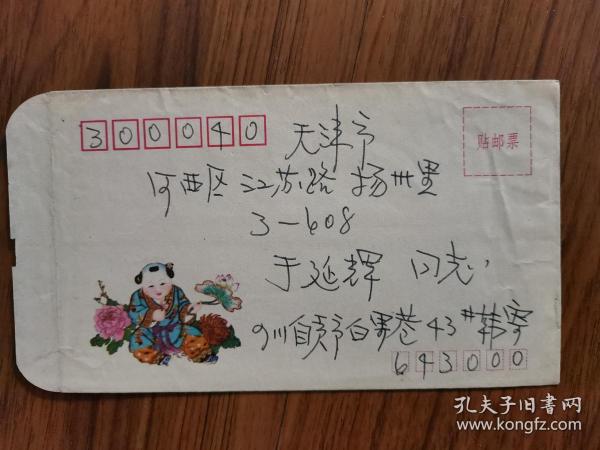 300040
天津市
贴邮票
河西区江苏路扬州里
3-608
于延辉 同志
四川自贡市白果巷43#韩寄
643000
孔夫子旧书网
www.kongfz.com